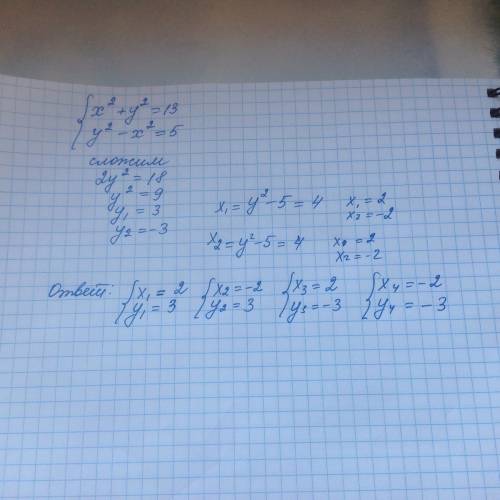 {x² + y² = 13
{y² - x² = 5
сложим
2y² = 18
y² = 9
y₁ = 3
y₂ = -3
x₁ = y² - 5 = 4 x₁ = 2
x₂ = -2
x₂ = y² - 5 = 4 x₁ = 2
x₂ = -2
Ответ: {x₁ = 2 {x₂ = -2 {x₃ = 2 {x₄ = -2
{y₁ = 3 {y₂ = 3 {y₃ = -3 {y₄ = -3